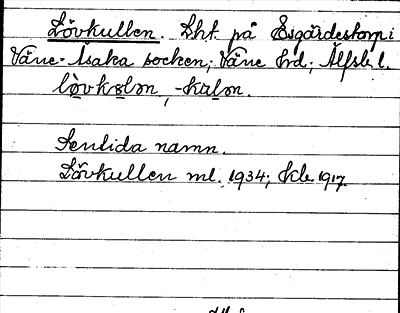 Lövkullen. Lht. på Esgärdestorp i
Väne-Åsaka socken; Väne hd; Älfsb. l.
lövkələn, -kulən.
Sentida namn.
Lövkullen ml. 1934; Kb. 1917.